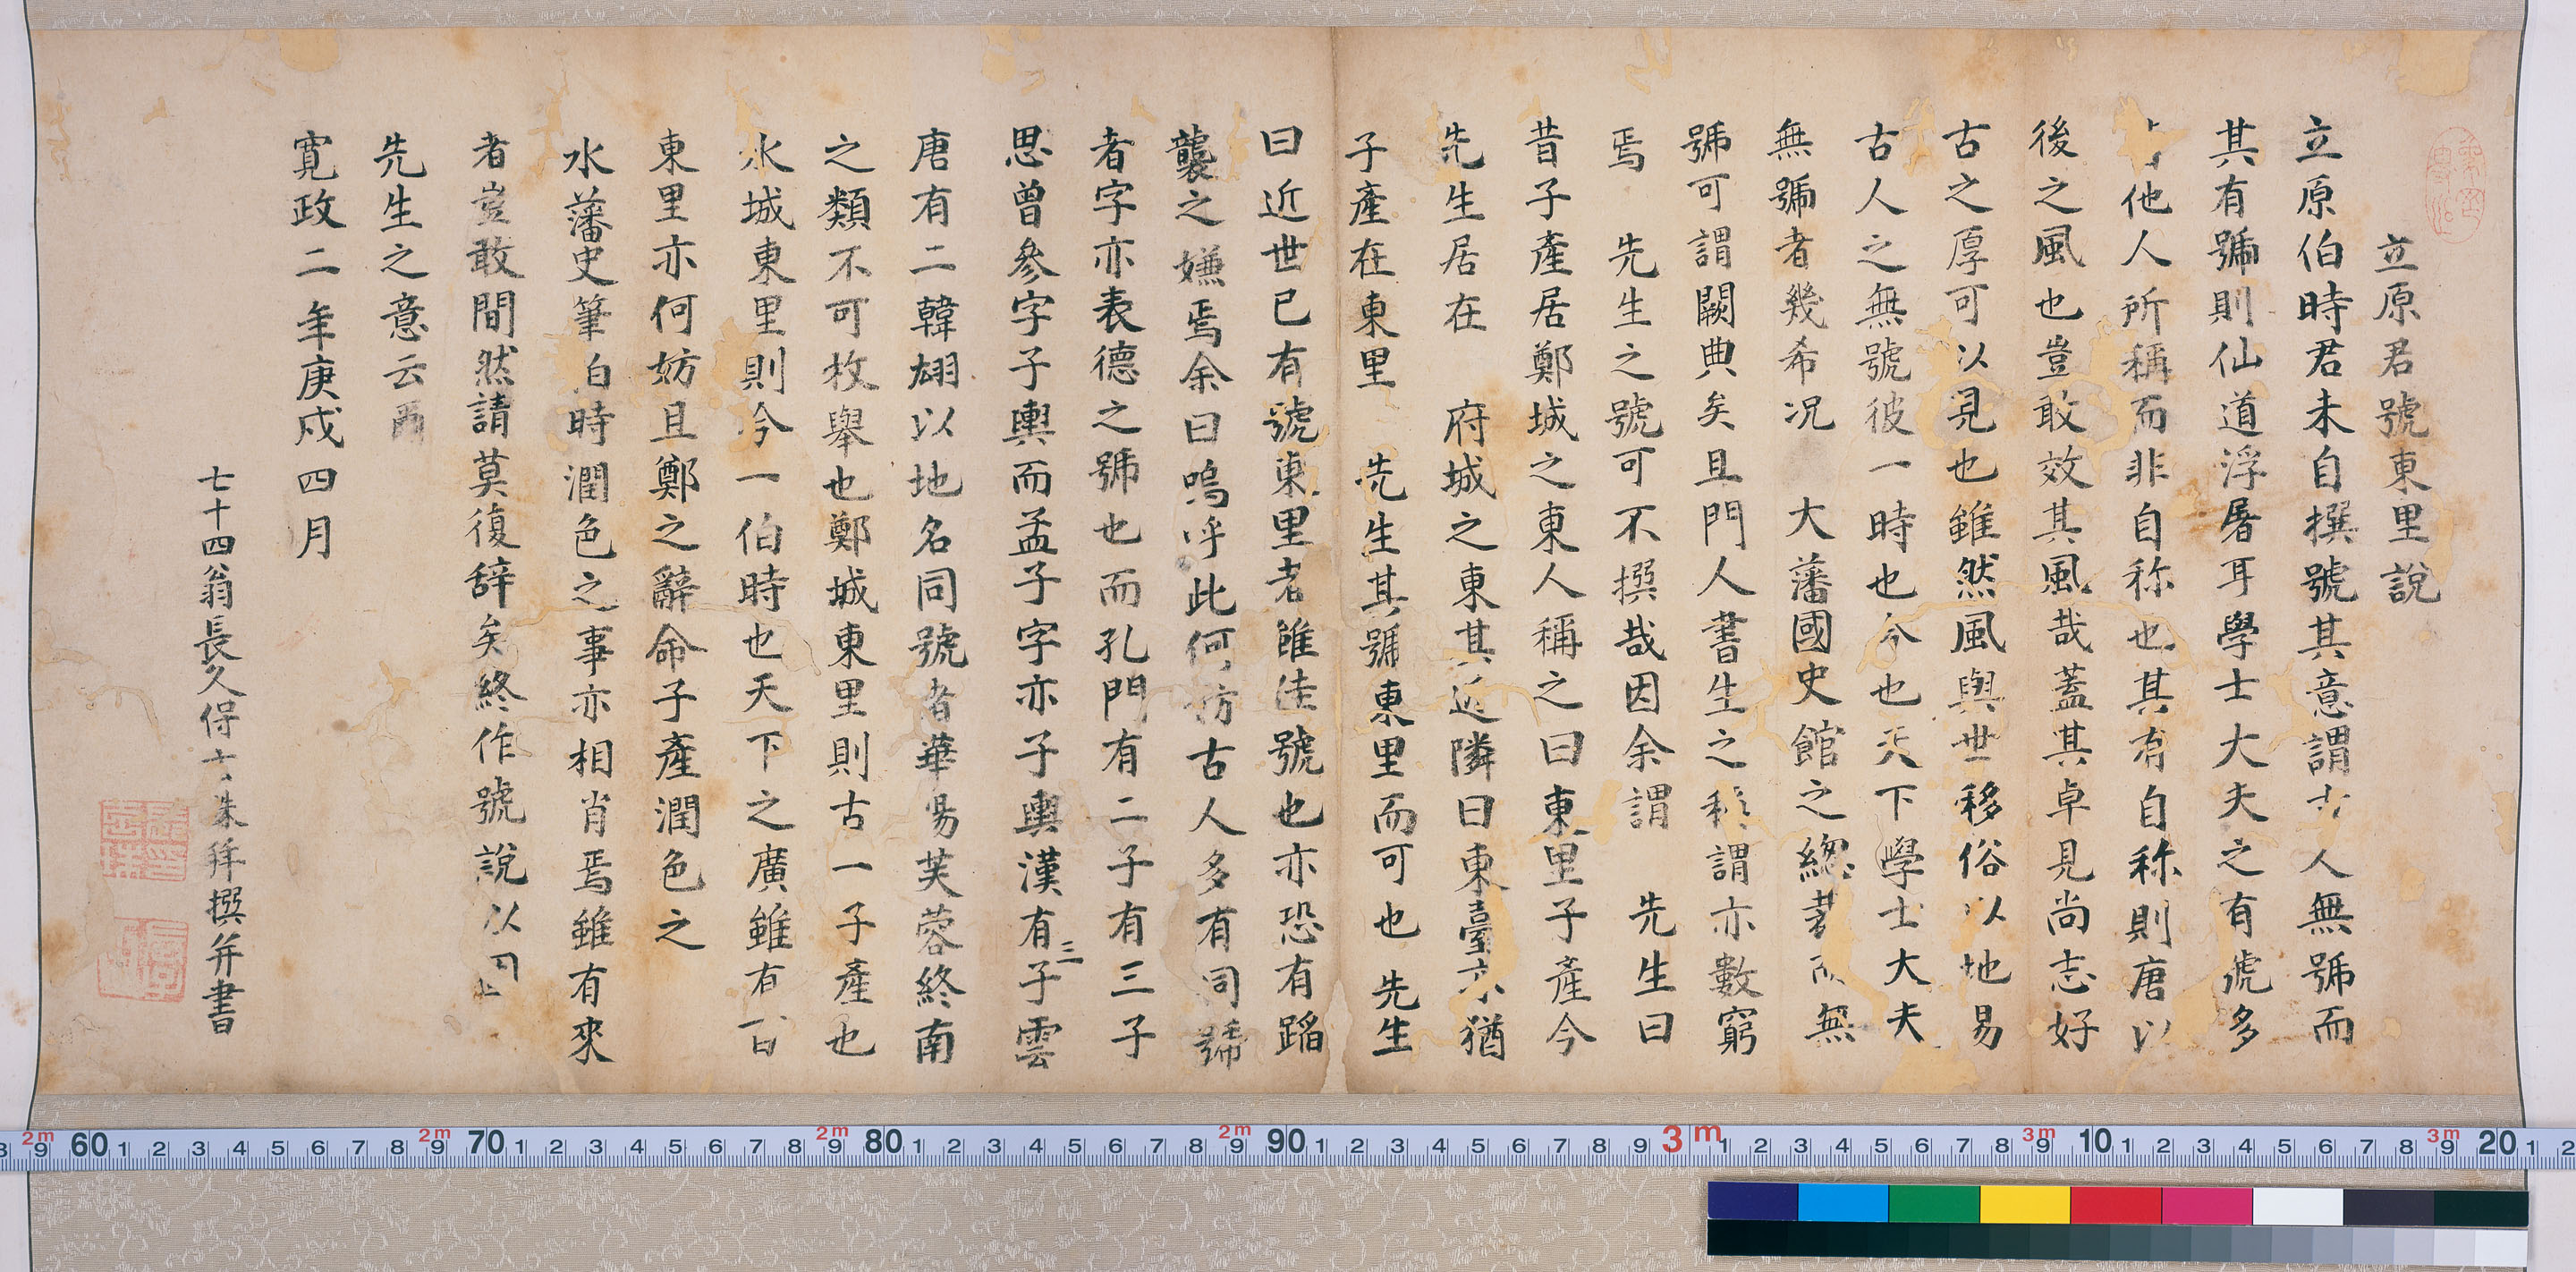 立原君號東里說
立原伯時君未自撰號其意謂古人無號而
其有號則仙道浮屠耳學士大夫之有號多
他人所稱而非自称也其有自称則唐以
後之風也豈敢效其風哉蓋其卓見尚志好
古之厚可以見也雖然風與世移俗以地易
古人之無號彼一時也今也天下學士大夫
無號者幾希况 大藩國史館之總裁而無
號可謂闕典矣且門人書生之稱謂亦數窮
焉 先生之號可不撰哉因余謂 先生曰
昔子產居鄭城之東人稱之曰東里子產今
先生居在 府城之東其近隣曰東臺亦猶
子產在東里 先生其號東里而可也 先生
曰近世已有號東里者雖佳號也亦恐有蹈
襲之嫌焉余曰嗚呼此何妨古人多有同號
者字亦表德之號也而孔門有二子有三子
思曾參字子輿而孟子字亦子輿漢有三子雲
唐有二韓翃以地名同號者華昜芙蓉終南
之類不可枚舉也鄭城東里則古一子產也
水城東里則今一伯時也天下之廣雖有百
東里亦何妨且鄭之辭命子產潤色之
水藩史筆伯時潤色之事亦相肖焉雖有來
者豈敢間然請莫復辞矣終作號說以
先生之意云爾
寬政二年庚戌四月
七十四翁長久保赤水拜撰并書
2m 60 1 2 3 4 5 6 7 8 2m 9 70 1 2 3 4 5 6 7 8 2m 9 80 1 2 3 4 5 6 7 8 2m 9 90 1 2 3 4 5 6 7 8 9 3m 1 2 3 4 5 6 7 8 3m 9 10 1 2 3 4 5 6 7 8 3m 9 20 1 2